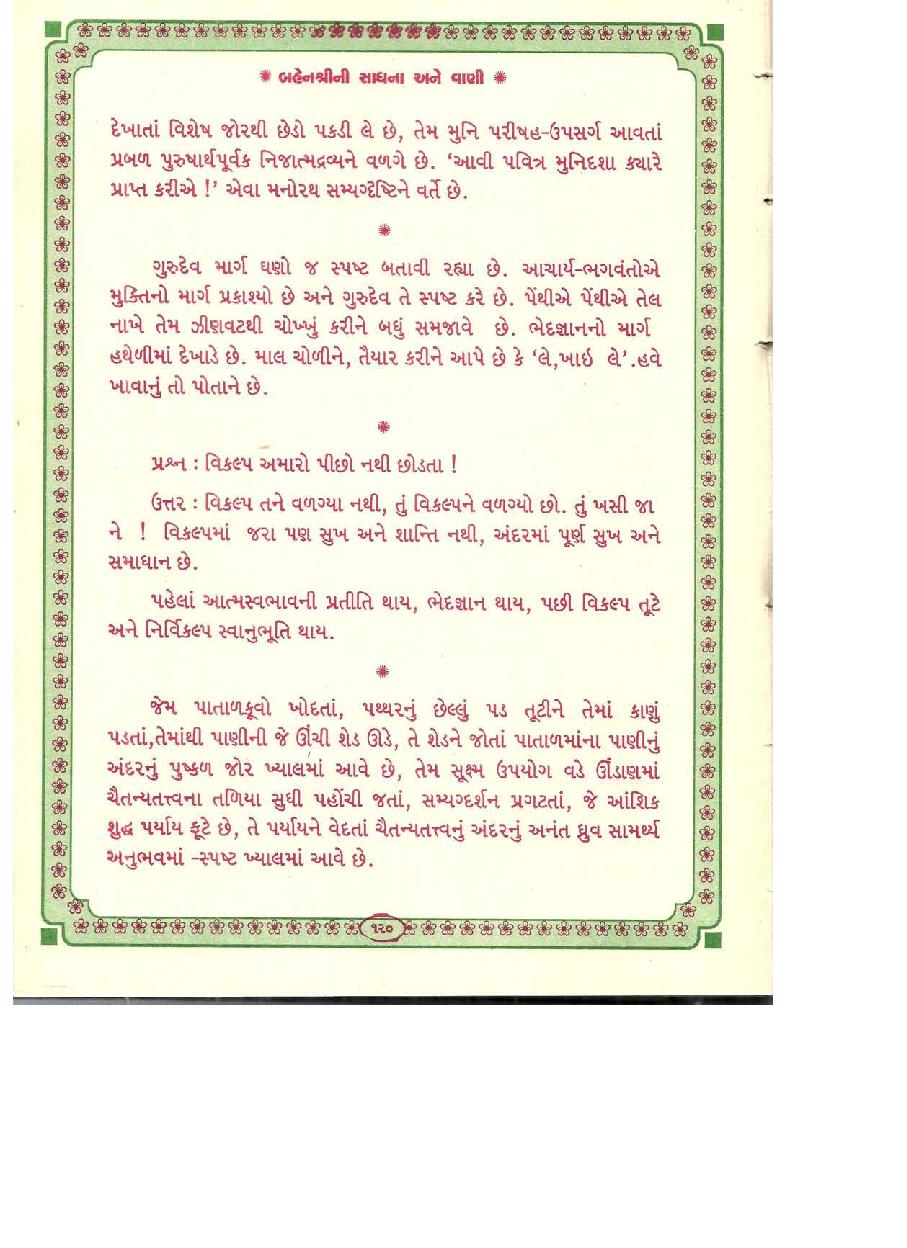 ✺ બહેનશ્રીની સાધના અને વાણી ✺
દેખાતાં વિશેષ જોરથી છેડો પકડી લે છે, તેમ મુનિ પરીષહ-ઉપસર્ગ આવતાં
પ્રબળ પુરુષાર્થપૂર્વક નિજાત્મદ્રવ્યને વળગે છે. ‘આવી પવિત્ર મુનિદશા ક્યારે
પ્રાપ્ત કરીએ !’ એવા મનોરથ સમ્યગ્દ્દષ્ટિને વર્તે છે.
✺
ગુરુદેવ માર્ગ ઘણો જ સ્પષ્ટ બતાવી રહ્યા છે. આચાર્ય-ભગવંતોએ
મુક્તિનો માર્ગ પ્રકાશ્યો છે અને ગુરુદેવ તે સ્પષ્ટ કરે છે. પેંથીએ પેંથીએ તેલ
નાખે તેમ ઝીણવટથી ચોખ્ખું કરીને બધું સમજાવે છે. ભેદજ્ઞાનનો માર્ગ
હથેળીમાં દેખાડે છે. માલ ચોળીને, તૈયાર કરીને આપે છે કે ‘લે,ખાઇ લે’.હવે
ખાવાનું તો પોતાને છે.
✺
પ્રશ્ન : વિકલ્પ અમારો પીછો નથી છોડતા !
ઉત્તર : વિકલ્પ તને વળગ્યા નથી, તું વિકલ્પને વળગ્યો છો. તું ખસી જા
ને ! વિકલ્પમાં જરા પણ સુખ અને શાન્તિ નથી, અંદરમાં પૂર્ણ સુખ અને
સમાધાન છે.
પહેલાં આત્મસ્વભાવની પ્રતીતિ થાય, ભેદજ્ઞાન થાય, પછી વિકલ્પ તૂટે
અને નિર્વિકલ્પ સ્વાનુભૂતિ થાય.
✺
જેમ પાતાળકૂવો ખોદતાં, પથ્થરનું છેલ્લું પડ તૂટીને તેમાં કાણું
પડતાં,તેમાંથી પાણીની જે ઊંચી શેડ ઊડે, તે શેડને જોતાં પાતાળમાંના પાણીનું
અંદરનું પુષ્કળ જોર ખ્યાલમાં આવે છે, તેમ સૂક્ષ્મ ઉપયોગ વડે ઊંડાણમાં
ચૈતન્યતત્ત્વના તળિયા સુધી પહોંચી જતાં, સમ્યગ્દર્શન પ્રગટતાં, જે આંશિક
શુદ્ધ પર્યાય ફૂટે છે, તે પર્યાયને વેદતાં ચૈતન્યતત્ત્વનું અંદરનું અનંત ધ્રુવ સામર્થ્ય
અનુભવમાં -સ્પષ્ટ ખ્યાલમાં આવે છે.
૧૨૦